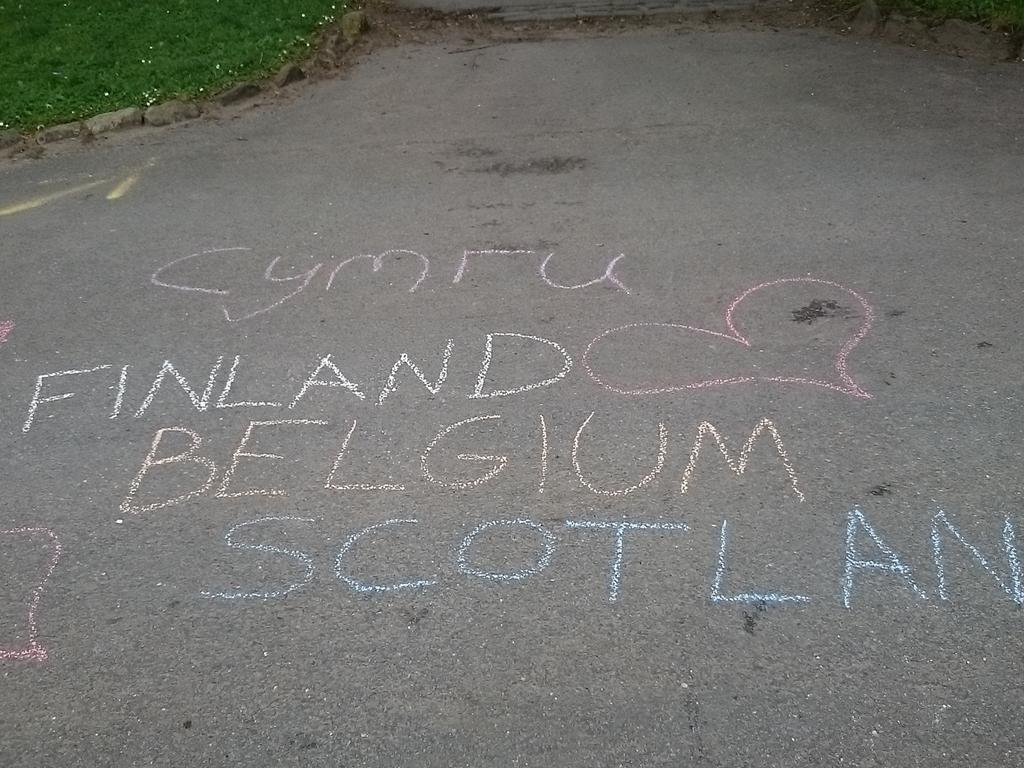 Cymru
FINLAND
BELGIUM
SCOTLAN